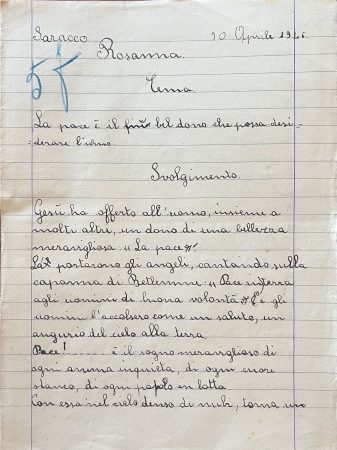 Saracco 30 Aprile 1946.
Rosanna.
5+
Tema.
La pace è il più bel dono che possa desi-
derare l'uomo.
Svolgimento.
Gesù ha offerto all'uomo, insieme a
molti altre, un dono di una bellezza
meravigliosa: "La pace"!
La portarono gli angeli, cantando sulla
capanna di Betlemme: "Pace in terra
agli uomini di buona volontà" E gli
uomini l'accolsero come un saluto, un
augurio del cielo alla terra.
Pace!....... è il sogno meraviglioso di
ogni anima inquieta, di ogni cuore
stanco, di ogni popolo in lotta.
Con essa nel cielo denso di nubi, torna un